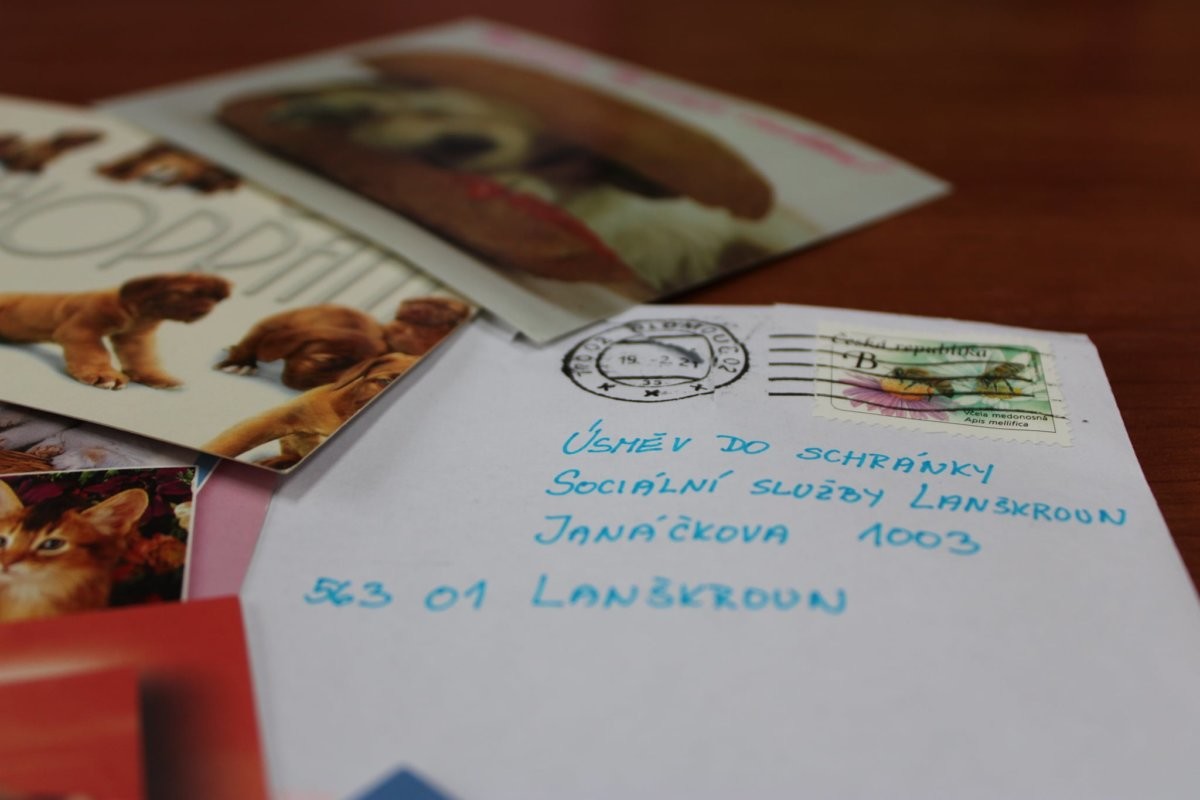 OLOMOUC 02
19. -2. 21
Česká republika
B
Včela medonosná
Apis mellifica
ÚSMĚV DO SCHRÁNKY
SOCIÁLNÍ SLUŽBY LANŠKROUN
JANÁČKOVA 1003
563 01 LANŠKROUN